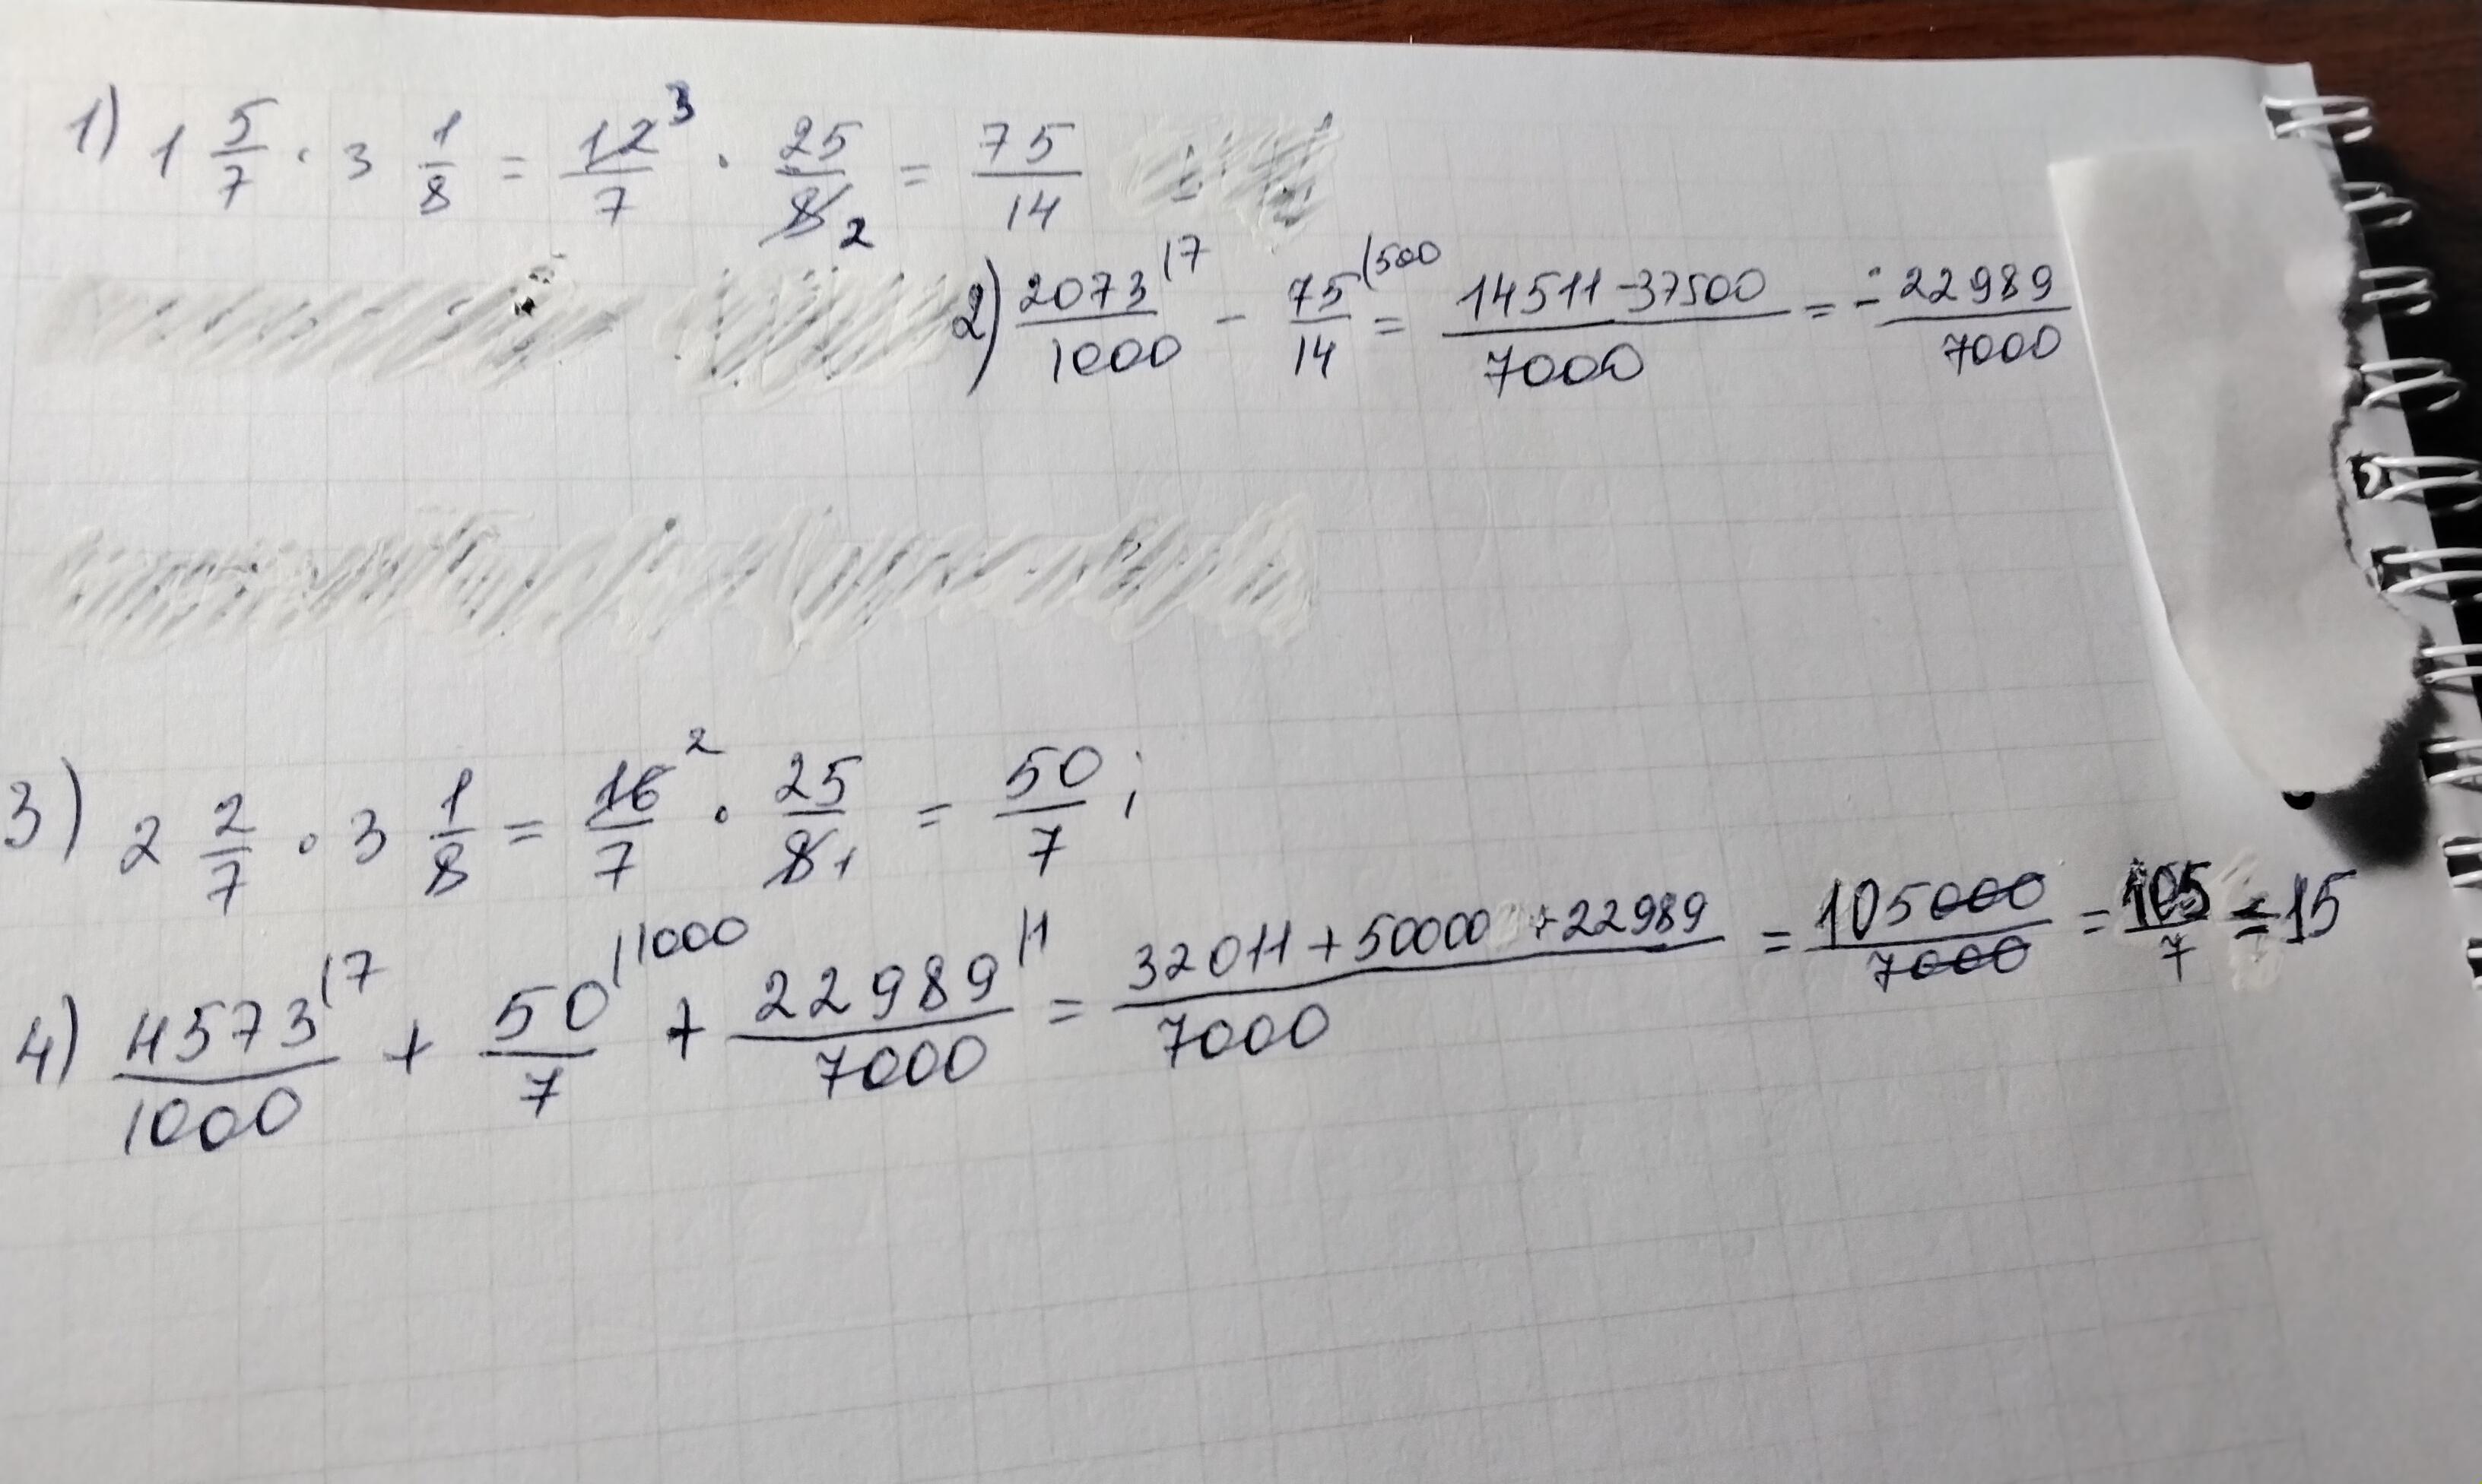 1) 1 5/7 · 3 1/8 = 12³/7 · 25/8₂ = 75/14
2) 2073/1000 |7 - 75/14 |500 = 14511-37500/7000 = -22989/7000
3) 2 2/7 · 3 1/8 = 16²/7 · 25/8₁ = 50/7 ;
4) 4573/1000 |7 + 50/7 |1000 + 22989/7000 |1 = 32011+50000+22989/7000 = 105000/7000 = 105/7 = 15